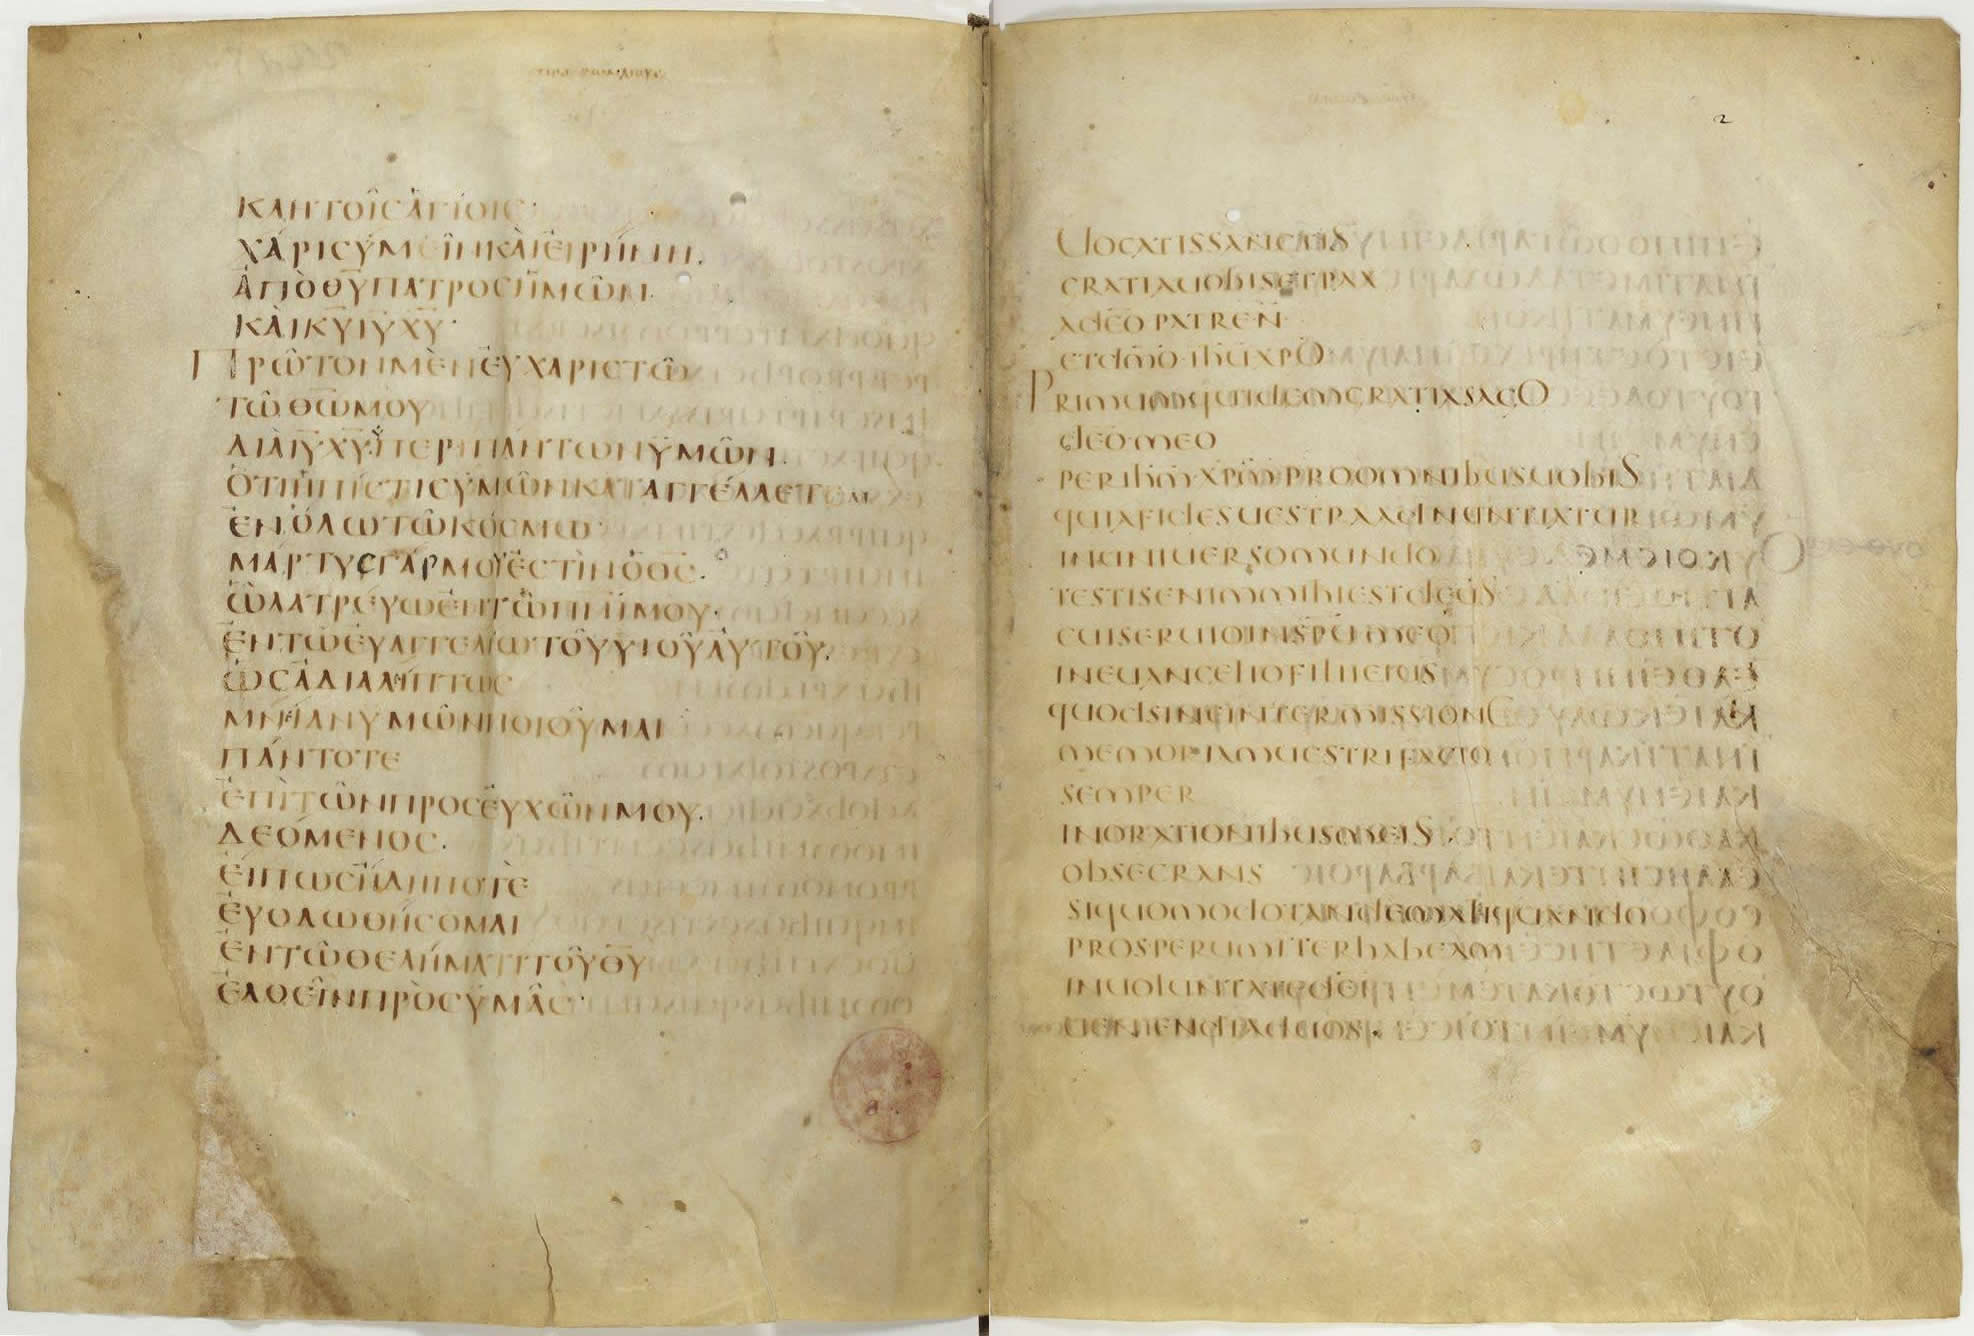 ΚΛΗΤΟῖC ἉΓΊΟΙC·
ΧΆΡΙC ΥΜΕῖΝ ΚΑῚ ΕΙΡΉΝΗ.
ἈΠῸ ΘΥ ΠΑΤΡΟC ἩΜῶΝ.
ΚΑῚ ΚΥ ΙΥ ΧΥ·
ΠΡῶΤΟΝ ΜῈΝ ΕΥΧΑΡΙCΤῶ
Τῶ Θῶ ΜΟΥ
ΔΙΑ ΙΥ ΧΥ ΥΠΕΡ ΠΑΝΤΩΝ ΥΜῶΝ.
ὍΤΙ Ἡ ΠΊCΤΙC ΥΜῶΝ ΚΑΤΑΓΓΈΛΛΕΤΑΙ
ἘΝ ὉΛΩ Τῶ ΚΌCΜΩ·
ΜΆΡΤΥC ΓΆΡ ΜΟΥ ἘCΤῚΝ Ὁ ΘC.
ὯΛΑΤΡΕΥΩ ἘΝ Τῶ ΠΝΙ ΜΟΥ·
ἘΝ Τῶ ΕΥΑΓΓΕΛΊΩ ΤΟῦ ΥΙΟῦ ΑΥΤΟῦ.
ὩC ἈΔΙΑΛΉΠΤΩC
ΜΝΊΑΝ ΥΜῶΝ ΠΟΙΟῦΜΑΙ
ΠΆΝΤΟΤΕ
ἘΠῚ ΤῶΝ ΠΡΟCΕΥΧῶΝ ΜΟΥ.
ΔΕΌΜΕΝΟC.
ἘΙΠΩC ἩΔΗ ΠΟΤῈ
ἘΥΟΔΩΘΉCΟΜΑΙ
ἘΝ Τῶ ΘΕΛΉΜΑΤΙ ΤΟῦ ΘΥ
ἘΛΘΕῖΝ ΠΡῸC ΥΜᾶC·
2
UOCATIS SANCTIS
GRATIA UOBIS ET PAX
A dEO PATRE N
ET dMO IHU XPO
PRIMUM QUIDEM GRATIAS AGO
dEO MEO
PER IHM XPM PRO OMNIBUS UOBIS
QUIA FIDES UESTRA ADNUNTIATUR
IN UNIUERSO MUNDO
TESTIS ENIM MIHI EST dEUS
CUI SERUIO IN SPU MEO
IN EUANGELIO FILII EIUS
QUOD SINE INTERMISSIONE
MEMORIAM UESTRI FACIO
SEMPER
IN ORATIONIBUS MEIS
OBSECRANS
SI QUOMODO TANDEM ALIQUANDO
PROSPERUM ITER HABEAM
IN UOLUNTATE dEI
UENIENDI AD UOS